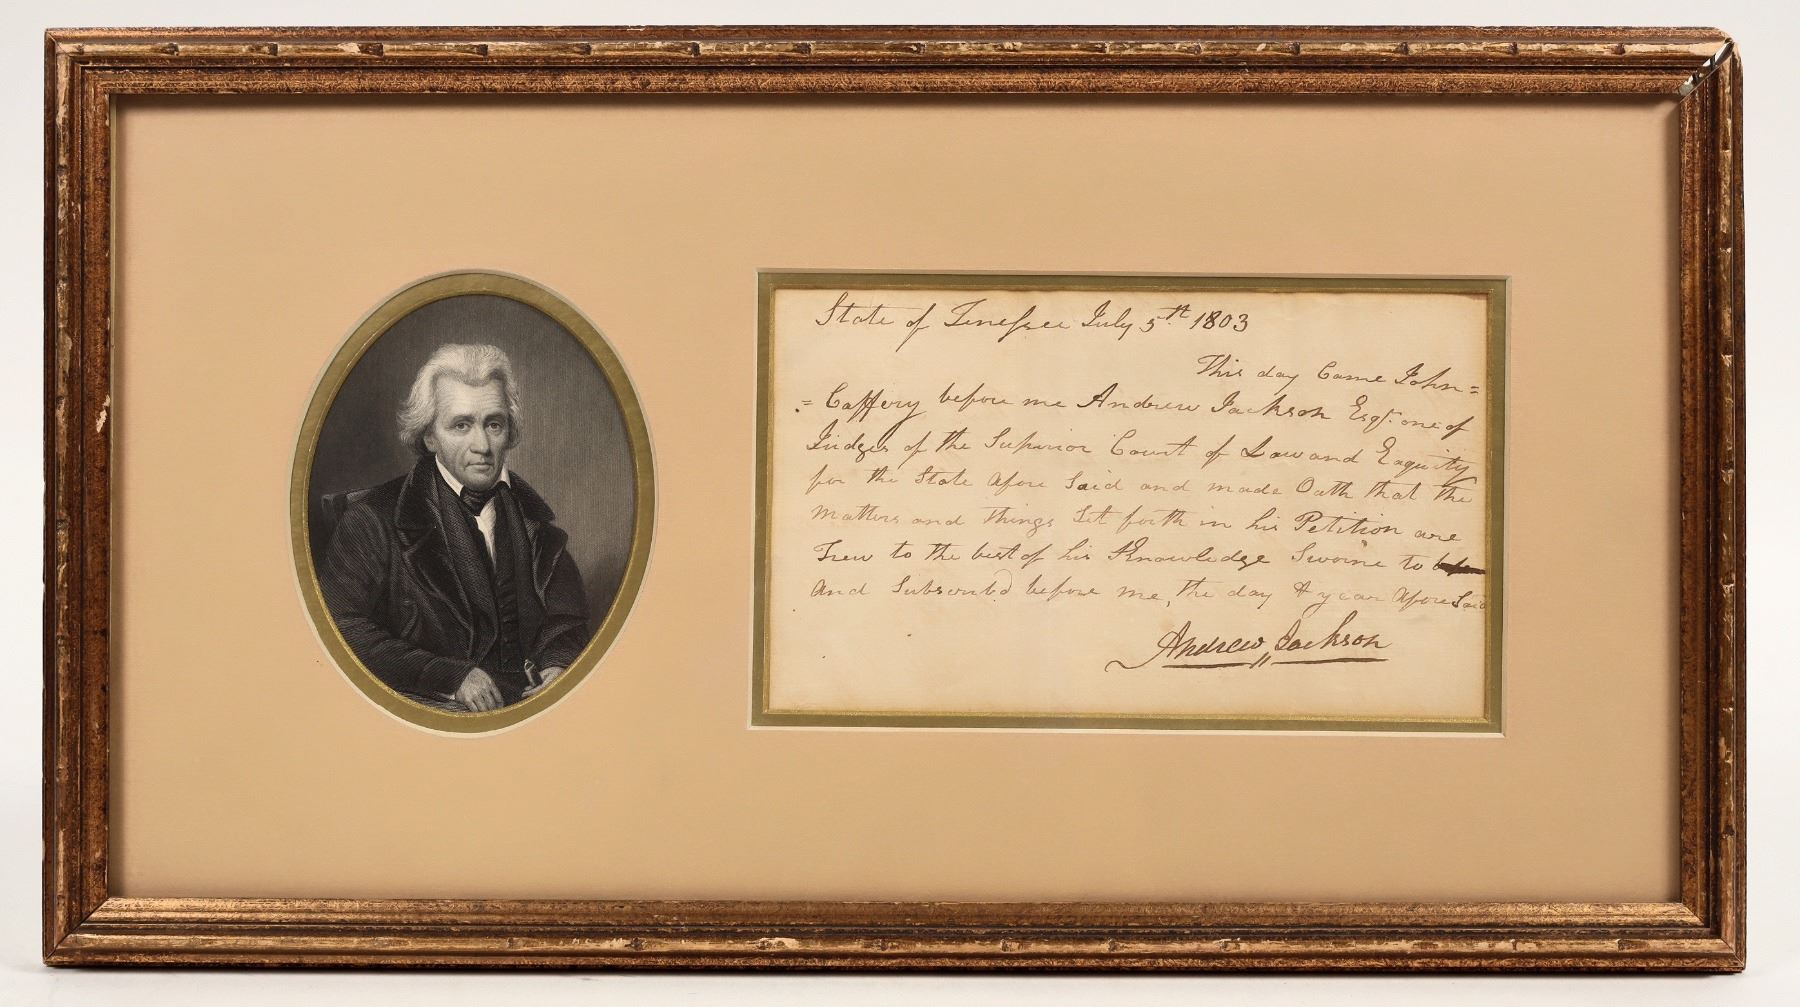 State of Tenessee July 5th 1803
This day Came John=
= Caffery before me Andrew Jackson Esqr. one of
Judges of the Superior Court of Law and Eaquity
for the State afore Said and made Oath that the
matters and things Set forth in his Petition are
Trew to the best of his Knowledge Sworne to
and Subscribd before me, the day & year afore Said
Andrew Jackson